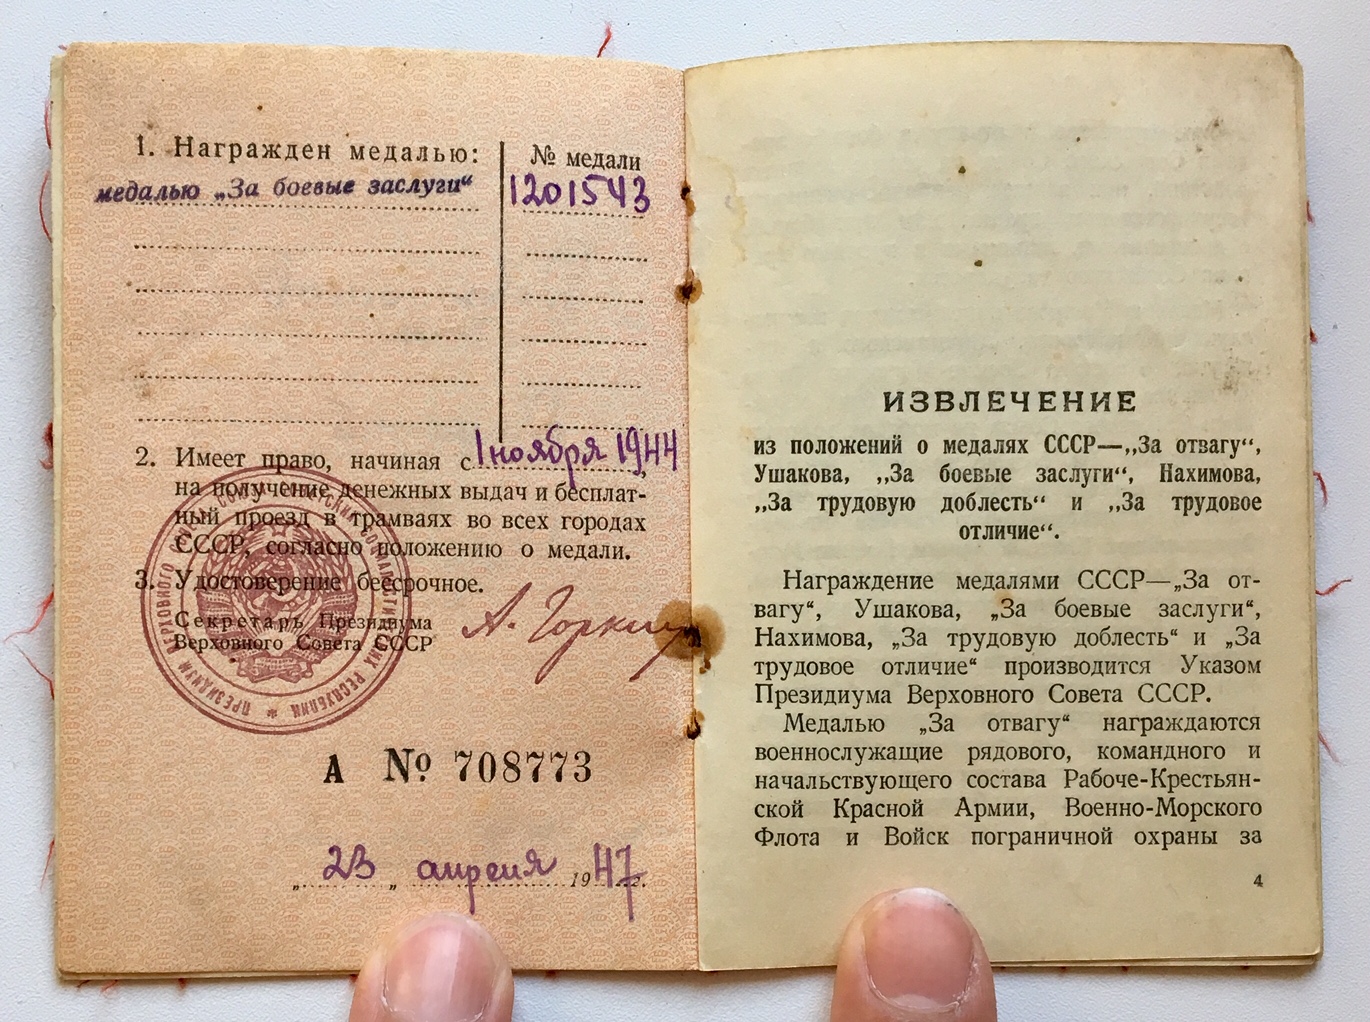 1. Награжден медалью:
№ медали
медалью „За боевые заслуги“
1201543
2. Имеет право, начиная с 1 ноября 1944,
на получение денежных выдач и бесплат-
ный проезд в трамваях во всех городах
СССР, согласно положению о медали.
3. Удостоверение бессрочное.
Секретарь Президиума
Верховного Совета СССР
А. Горкин
ПРЕЗИДИУМ ВЕРХОВНОГО СОВЕТА СОЮЗА СОВЕТСКИХ СОЦИАЛИСТИЧЕСКИХ РЕСПУБЛИК
А № 708773
„23„ апреля 1947г.
ИЗВЛЕЧЕНИЕ
из положений о медалях СССР—„За отвагу“,
Ушакова, „За боевые заслуги“, Нахимова,
„За трудовую доблесть“ и „За трудовое
отличие“.
Награждение медалями СССР—„За от-
вагу“, Ушакова, „За боевые заслуги“,
Нахимова, „За трудовую доблесть“ и „За
трудовое отличие“ производится Указом
Президиума Верховного Совета СССР.
Медалью „За отвагу“ награждаются
военнослужащие рядового, командного и
начальствующего состава Рабоче-Крестьян-
ской Красной Армии, Военно-Морского
Флота и Войск пограничной охраны за
4